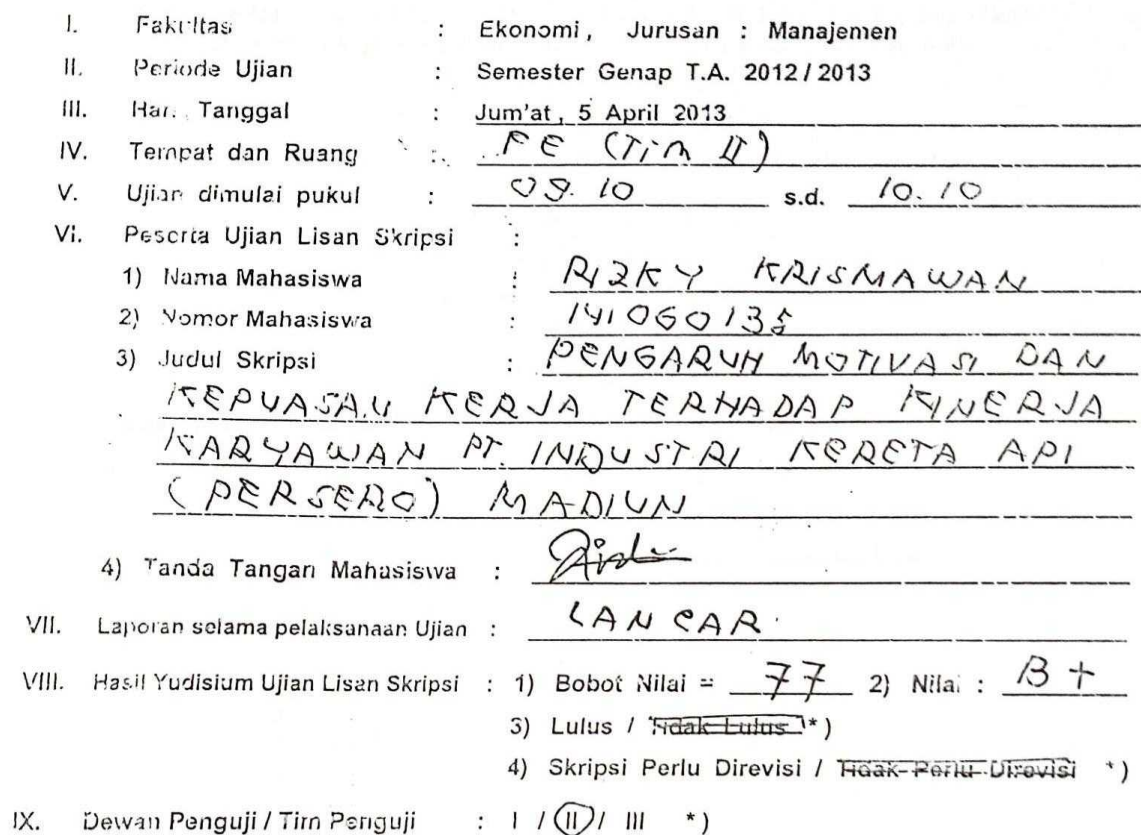 I. Fakultas : Ekonomi, Jurusan : Manajemen
II. Periode Ujian : Semester Genap T.A. 2012 / 2013
III. Hari, Tanggal : Jum'at, 5 April 2013
IV. Tempat dan Ruang : FE (Tim II)
V. Ujian dimulai pukul : 09.10 s.d. 10.10
VI. Peserta Ujian Lisan Skripsi :
1) Nama Mahasiswa : RIZKY KRISMAWAN
2) Nomor Mahasiswa : 141060135
3) Judul Skripsi : PENGARUH MOTIVASI DAN
KEPUASAN KERJA TERHADAP KINERJA
KARYAWAN PT. INDUSTRI KERETA API
(PERSERO) MADIUN
4) Tanda Tangan Mahasiswa :
VII. Laporan selama pelaksanaan Ujian : LANCAR.
VIII. Hasil Yudisium Ujian Lisan Skripsi : 1) Bobot Nilai = 77 2) Nilai : B+
3) Lulus / Tidak Lulus *)
4) Skripsi Perlu Direvisi / Tidak Perlu Direvisi *)
IX. Dewan Penguji / Tim Penguji : I / II / III *)